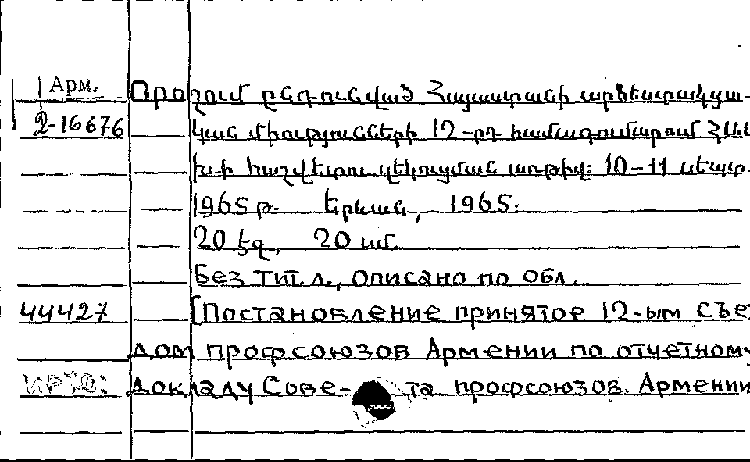 Арм. Որոշում ընդունված Հայաստանի արհեստակցա-
2-16676 կան միությունների 12-րդ համագումարում ՀԱՄ
խ-ի հաշվետու զեկուցման առթիվ: 10-11 սեպտ.
1965 թ. Երևան, 1965.
20 էջ, 20 սմ.
Без тит. л., описано по обл.
44427 [Постановление принятое 12-ым Съе-
дом профсоюзов Армении по отчетному
докладу Сове- та профсоюзов. Армении